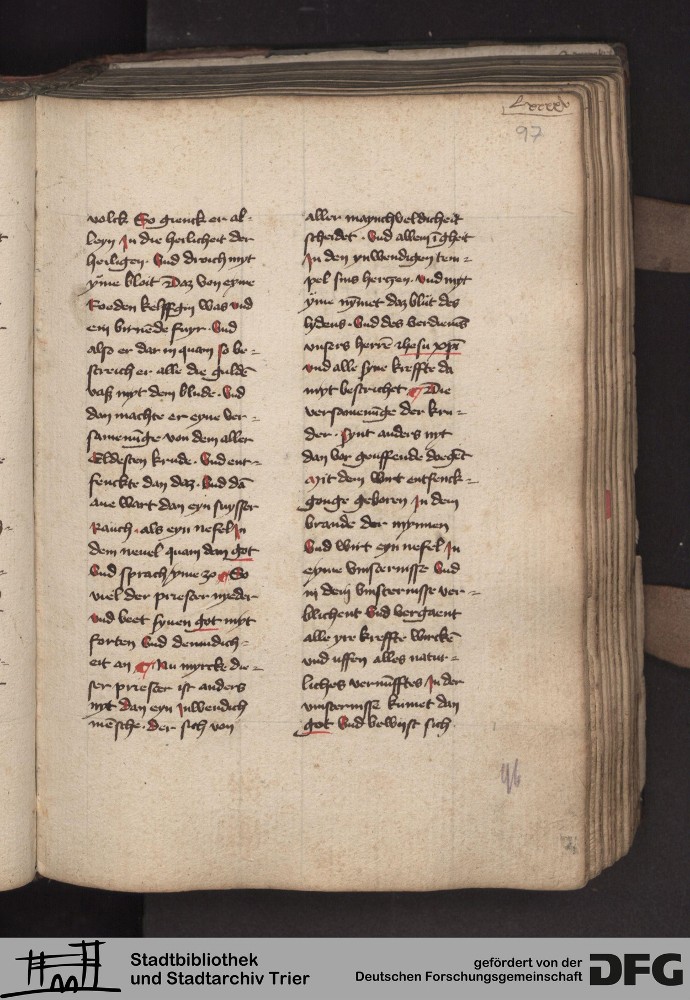 97
volck So gienck er al-
leyn In die heilicheit der
heiligen. Vnd drouch myt
yme bloit Daz von eyme
Roeden was vnd
ein birnēde fuyr. Vnd
also er dar in quam so be-
streich er alle die guldē
vaß myt dem blude. Vnd
dan machte er eyne ver-
samenūge von dem aller
Eldesten krude. Vnd ent-
fenckte dan daz. Vnd dā
aue wart dan eyn suysser
Rauch. als eyn nefel In
dem neuel quam dan got
Vnd sprach yme zo So
viel der priester nyeder
vnd beet synen got myt
forten Vnd demudich-
eit an Nu myrcke die-
ser priester ist anders
nyt dan eyn Inwendich
mēsche. der sich von
aller manychueldicheit
scheidet. Vnd
In den ynwendigen tem-
pel sins hertzen. vnd myt
yme nymet daz blut des
lydens. Vnd des verdiens
vnsers herrē ihesu xpi
vnd alle syne kreffte da
myt bestrichet Die
versamenūge der kru-
der. synt anders nyt
dan vor geuffende doeget
Mit dem wirt entfenck-
geboren In dem
brande der mynnen
Vnd wirt eyn nefel In
eyme vinsternisse Vnd
in dem vinsternisse ver-
blichent Vnd vergaent
alle yre kreffte wirckē
vnd uffen alles natur-
liches vernūfftes In der
vinsternisse kumet dan
got Vnd bewijst sich
96
Stadtbibliothek
und Stadtarchiv Trier
gefördert von der
Deutschen Forschungsgemeinschaft
DFG